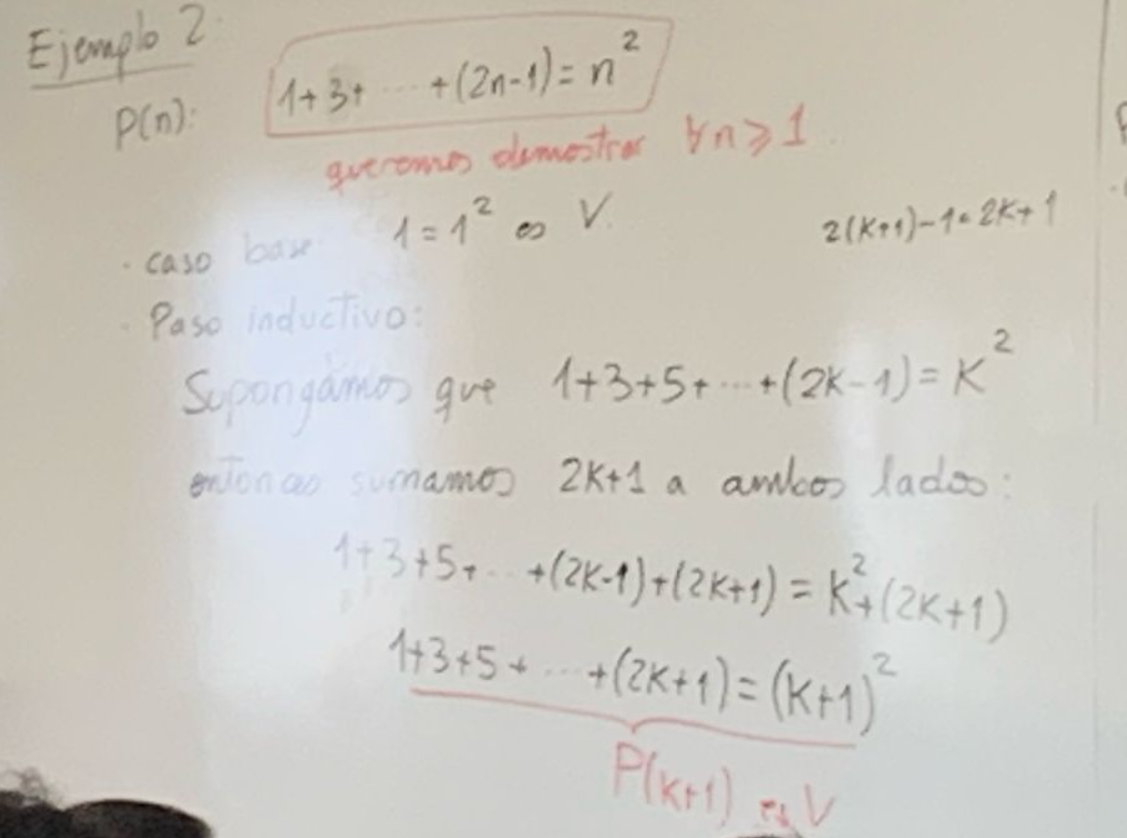 Ejemplo 2
P(n): 1+3+ ... +(2n-1) = n²
queremos demostrar ∀n ⩾ 1.
· caso base 1 = 1² es V.
2(k+1)-1 = 2k+1
· Paso inductivo:
Supongamos que 1+3+5+ ... +(2k-1) = k²
entonces sumamos 2k+1 a ambos lados:
1+3+5+ ... +(2k-1)+(2k+1) = k²+(2k+1)
1+3+5+ ... +(2k+1) = (k+1)²
P(k+1) es V